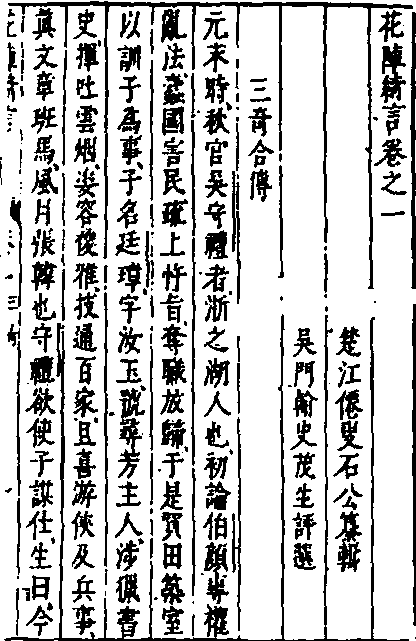 花陣綺言卷之一
楚江僊叟石公纂輯
吳門翰史茂生評選
三奇合傳
元末時、秋官吳守禮者、浙之湖人也、初論伯顏專權
亂法、蠹國害民、疏上忤旨、奪職放歸、于是買田築室
以訓子爲事、子名廷璋、字汝玉、號尋芳主人、涉獵書
史、揮吐雲烟、姿容俊雅、技通百家、且喜游俠及兵事、
真文章班馬、風月張韓也、守禮欲使子謀仕、生曰、今